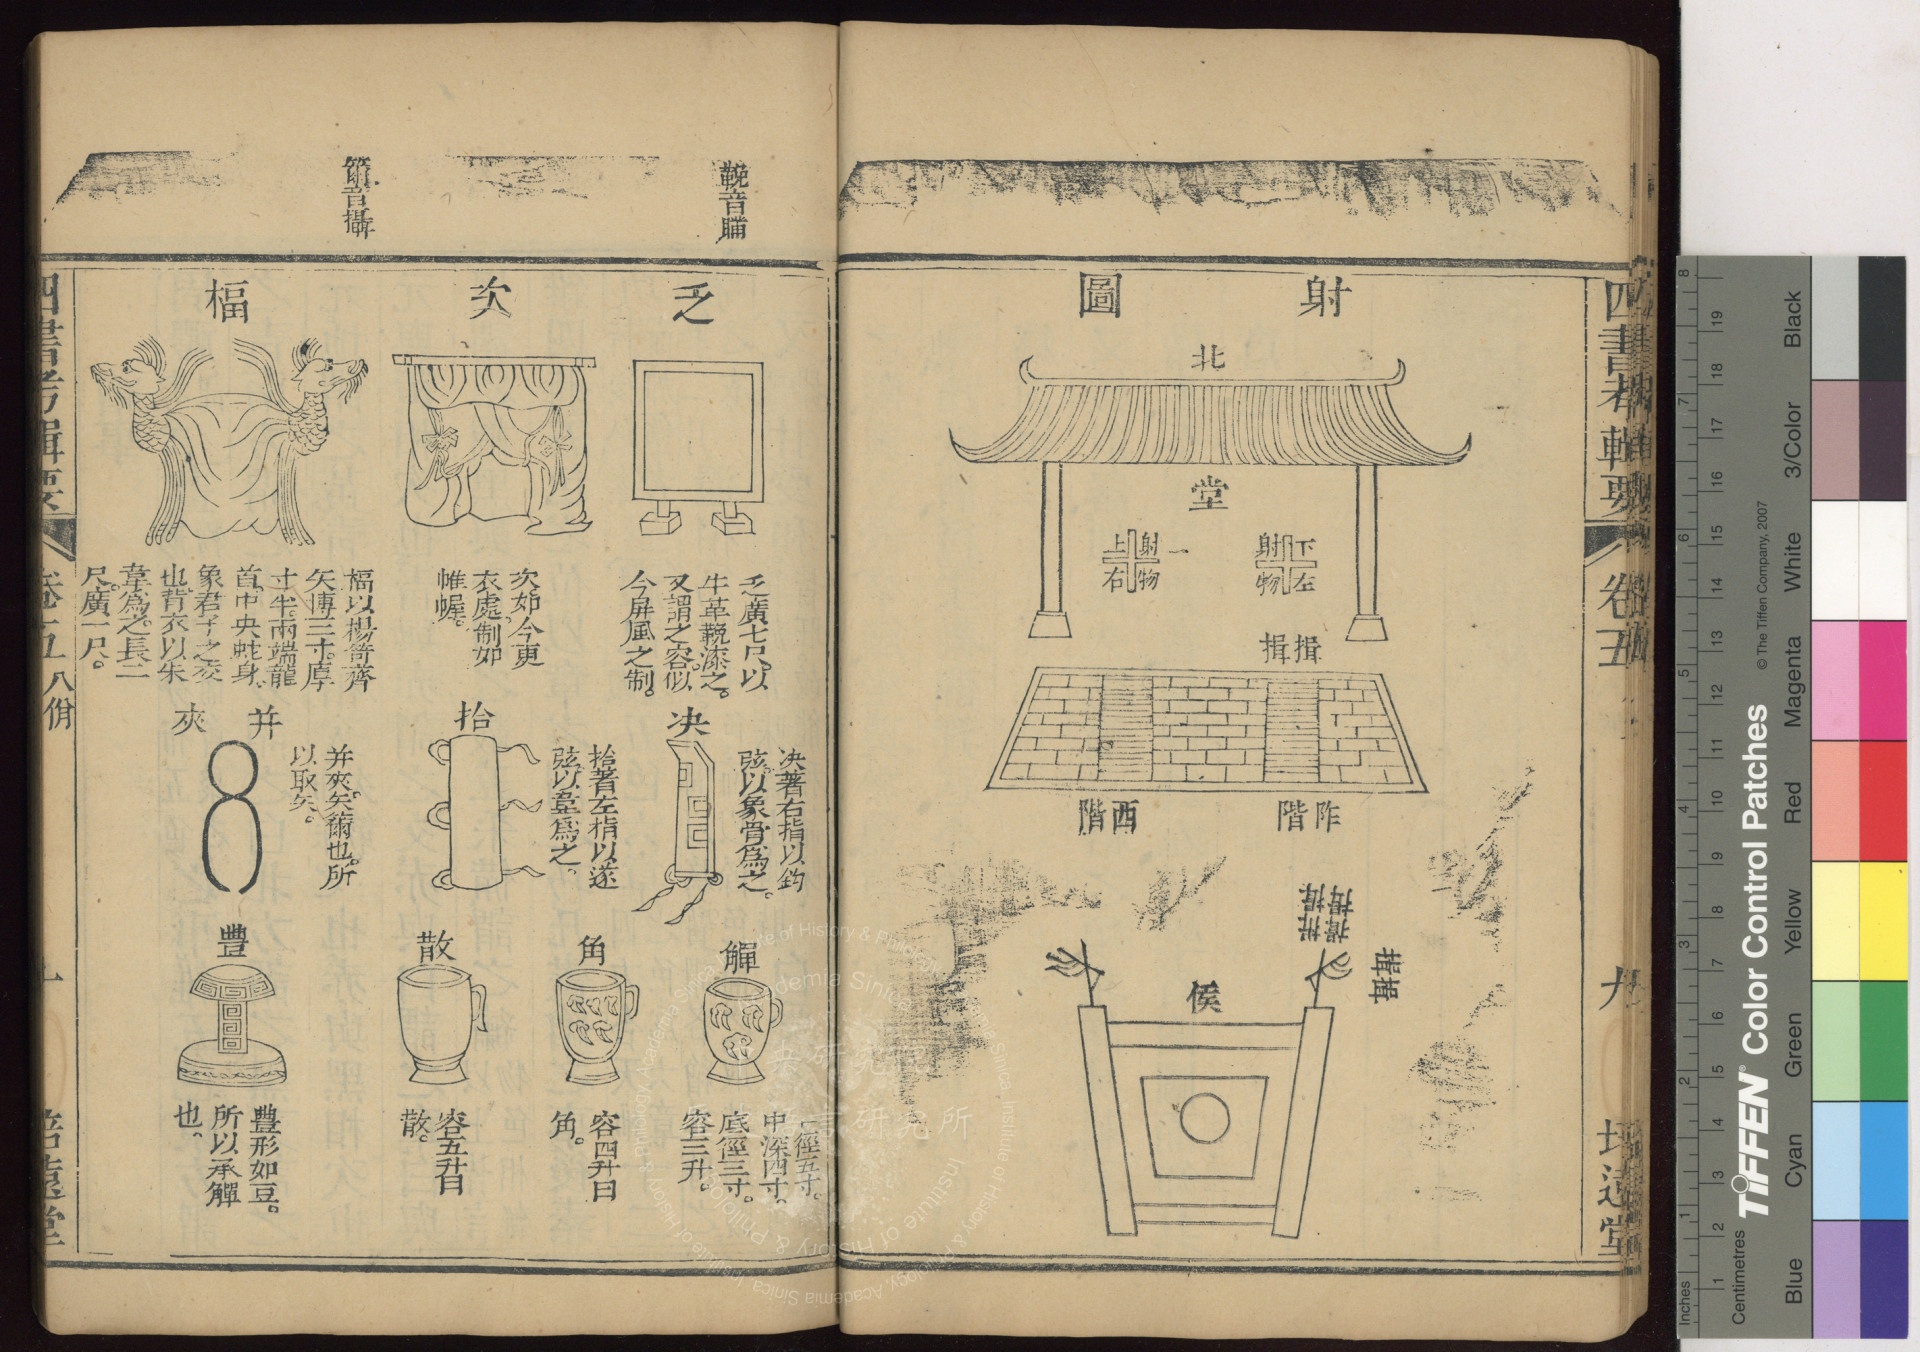 四書考輯要
卷五
九
培遠堂
射圖
北
堂
下左射物
一射物上右
揖揖
阼階
西階
揖揖
揖揖
揖揖
侯
鞔音瞞
箾音攝
乏
乏廣七尺以
牛革鞔漆之。
又謂之容。似
今屏風之制。
次
次如今更
衣處。制如
帷幄。
楅
楅以楊笴齊
矢摶三寸。厚
寸半。兩端龍
首。中央蛇身。
象君子之交
也。背衣以朱
韋為之。長二
尺。廣一尺。
决
决著右指以鈎
弦。以象骨為之。
拾
拾著左指以遂
弦。以韋為之。
并夾
并夾。矢箾也。所
以取矢。
觶
口徑五寸。
中深四寸。
底徑三寸。
容三升。
角
容四升曰
角。
散
容五升曰
散。
豐
豐形如豆。
所以承觶
也。
四書考輯要
卷五
八佾
十
培遠堂
TIFFEN® Color Control Patches
© The Tiffen Company, 2007
Centimetres
Inches
Blue
Cyan
Green
Yellow
Red
Magenta
White
3/Color
Black
1 2 3 4 5 6 7 8 9 10 11 12 13 14 15 16 17 18 19
1 2 3 4 5 6 7 8
Institute of History & Philology, Academia Sinica